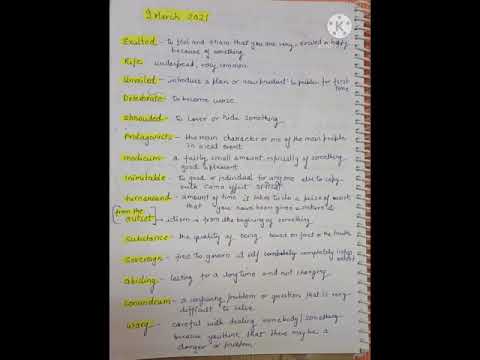 9 March 2021
Exulted - to feel and show that you are very excited or happy
because of something
Rife widespread, very common
Unveiled - introduce a plan or new product to public for first
time
Deteriorate - to become worse
Shrouded - to cover or hide something
Protagonists - the main character or one of the main people
in a real event
modicum - a fairly small amount especially of something
good or pleasant
Inimitable - to good or individual for anyone else to copy
with same effect
turnaround - amount of time is takes to do a piece of work
that you have been given
[from the
outset] - idiom is from the begining of something
Substance - the quality of being based on fact or the truth
Sovereign - free to govern it self completely
abiding - lasting for a long time and not changing
Conundrum - a confusing problem or question that is very
difficult to solve
Wary - careful with dealing somebody / something
because you think that there may be a
danger or problem